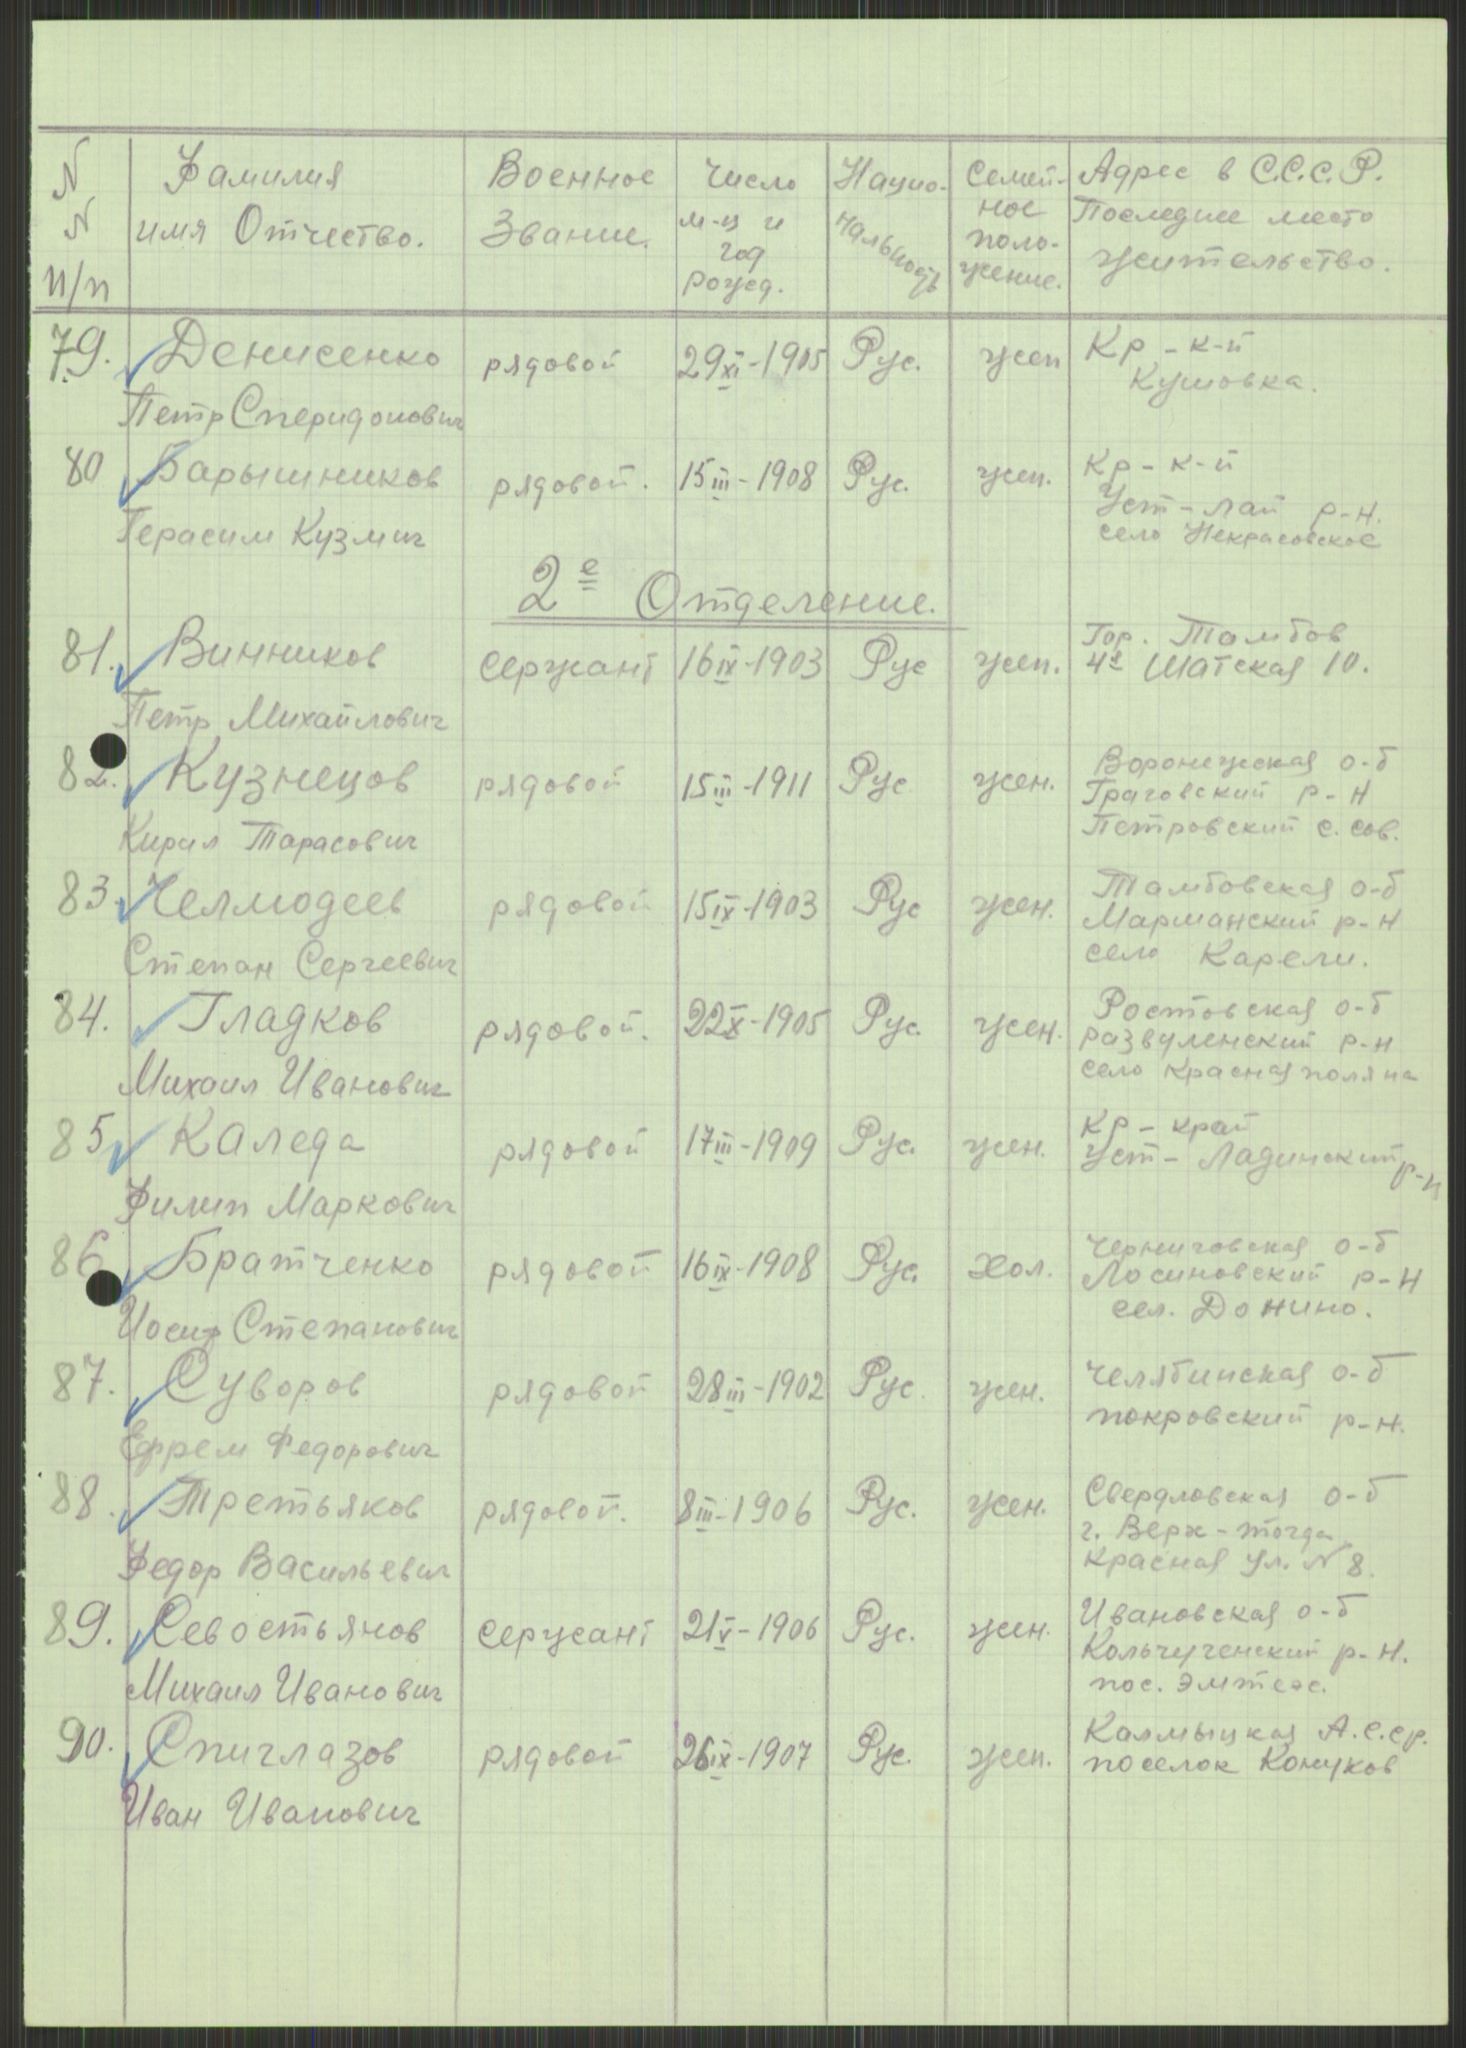 N N п/п | Фамилия имя Отчество. | Военное Звание. | Число м-ц и год рожд. | Национальность | Семейное положение. | Адрес в С.С.С.Р. Последние место жительство.
79. Денисенко рядовой 29 XI-1905 Рус. жен Кр-к-й
Петр Сперидонович Кушовка.
80 Барышников рядовой. 15 III-1908 Рус. жен. Кр-к-й
Уст-лаб р-н.
Герасим Кузмич село Некрасовское
2е Отделение.
81. Винников сержант 16 IX-1903 Рус жен. Гор. Тамбов
4я Шатская 10.
Петр Михайлович
82. Кузнецов рядовой 15 III-1911 Рус жен. Воронежская о-б
Граговский р-н
Кирил Тарасович Петровский с. сов.
83. Челмодеев рядовой 15 IX-1903 Рус жен. Тамбовская о-б
Маршанский р-н
Степан Сергеевич село Карели.
84. Гладков рядовой. 22 X-1905 Рус. жен. Ростовская о-б
развиленский р-н
Михаил Иванович село Красная поляна
85 Каледа рядовой 17 III-1909 Рус. жен. Кр-край
Уст-Ладинский р-н
Филип Маркович
86 Братченко рядовой 16 IX-1908 Рус. Хол. Черниговская о-б
Лосиновский р-н
Иосиф Степанович сел. Донино.
87. Суворов рядовой 28 III-1902 Рус. жен. Челябинская о-б
покровский р-н.
Ефрем Федорович
88. Третьяков рядовой. 8 III-1906 Рус. жен. Свердловская о-б
г. Верх-тогда
Федор Васильевич Красная ул. N 8.
89. Севостьянов сержант 21 V-1906 Рус. жен. Ивановская о-б
Кольчугенский р-н.
Михаил Иванович пос. Элмтеэс.
90. Спиглазов рядовой 26 IX-1907 Рус. жен. Калмыцкая А.С.ср.
поселок Кануков
Иван Иванович